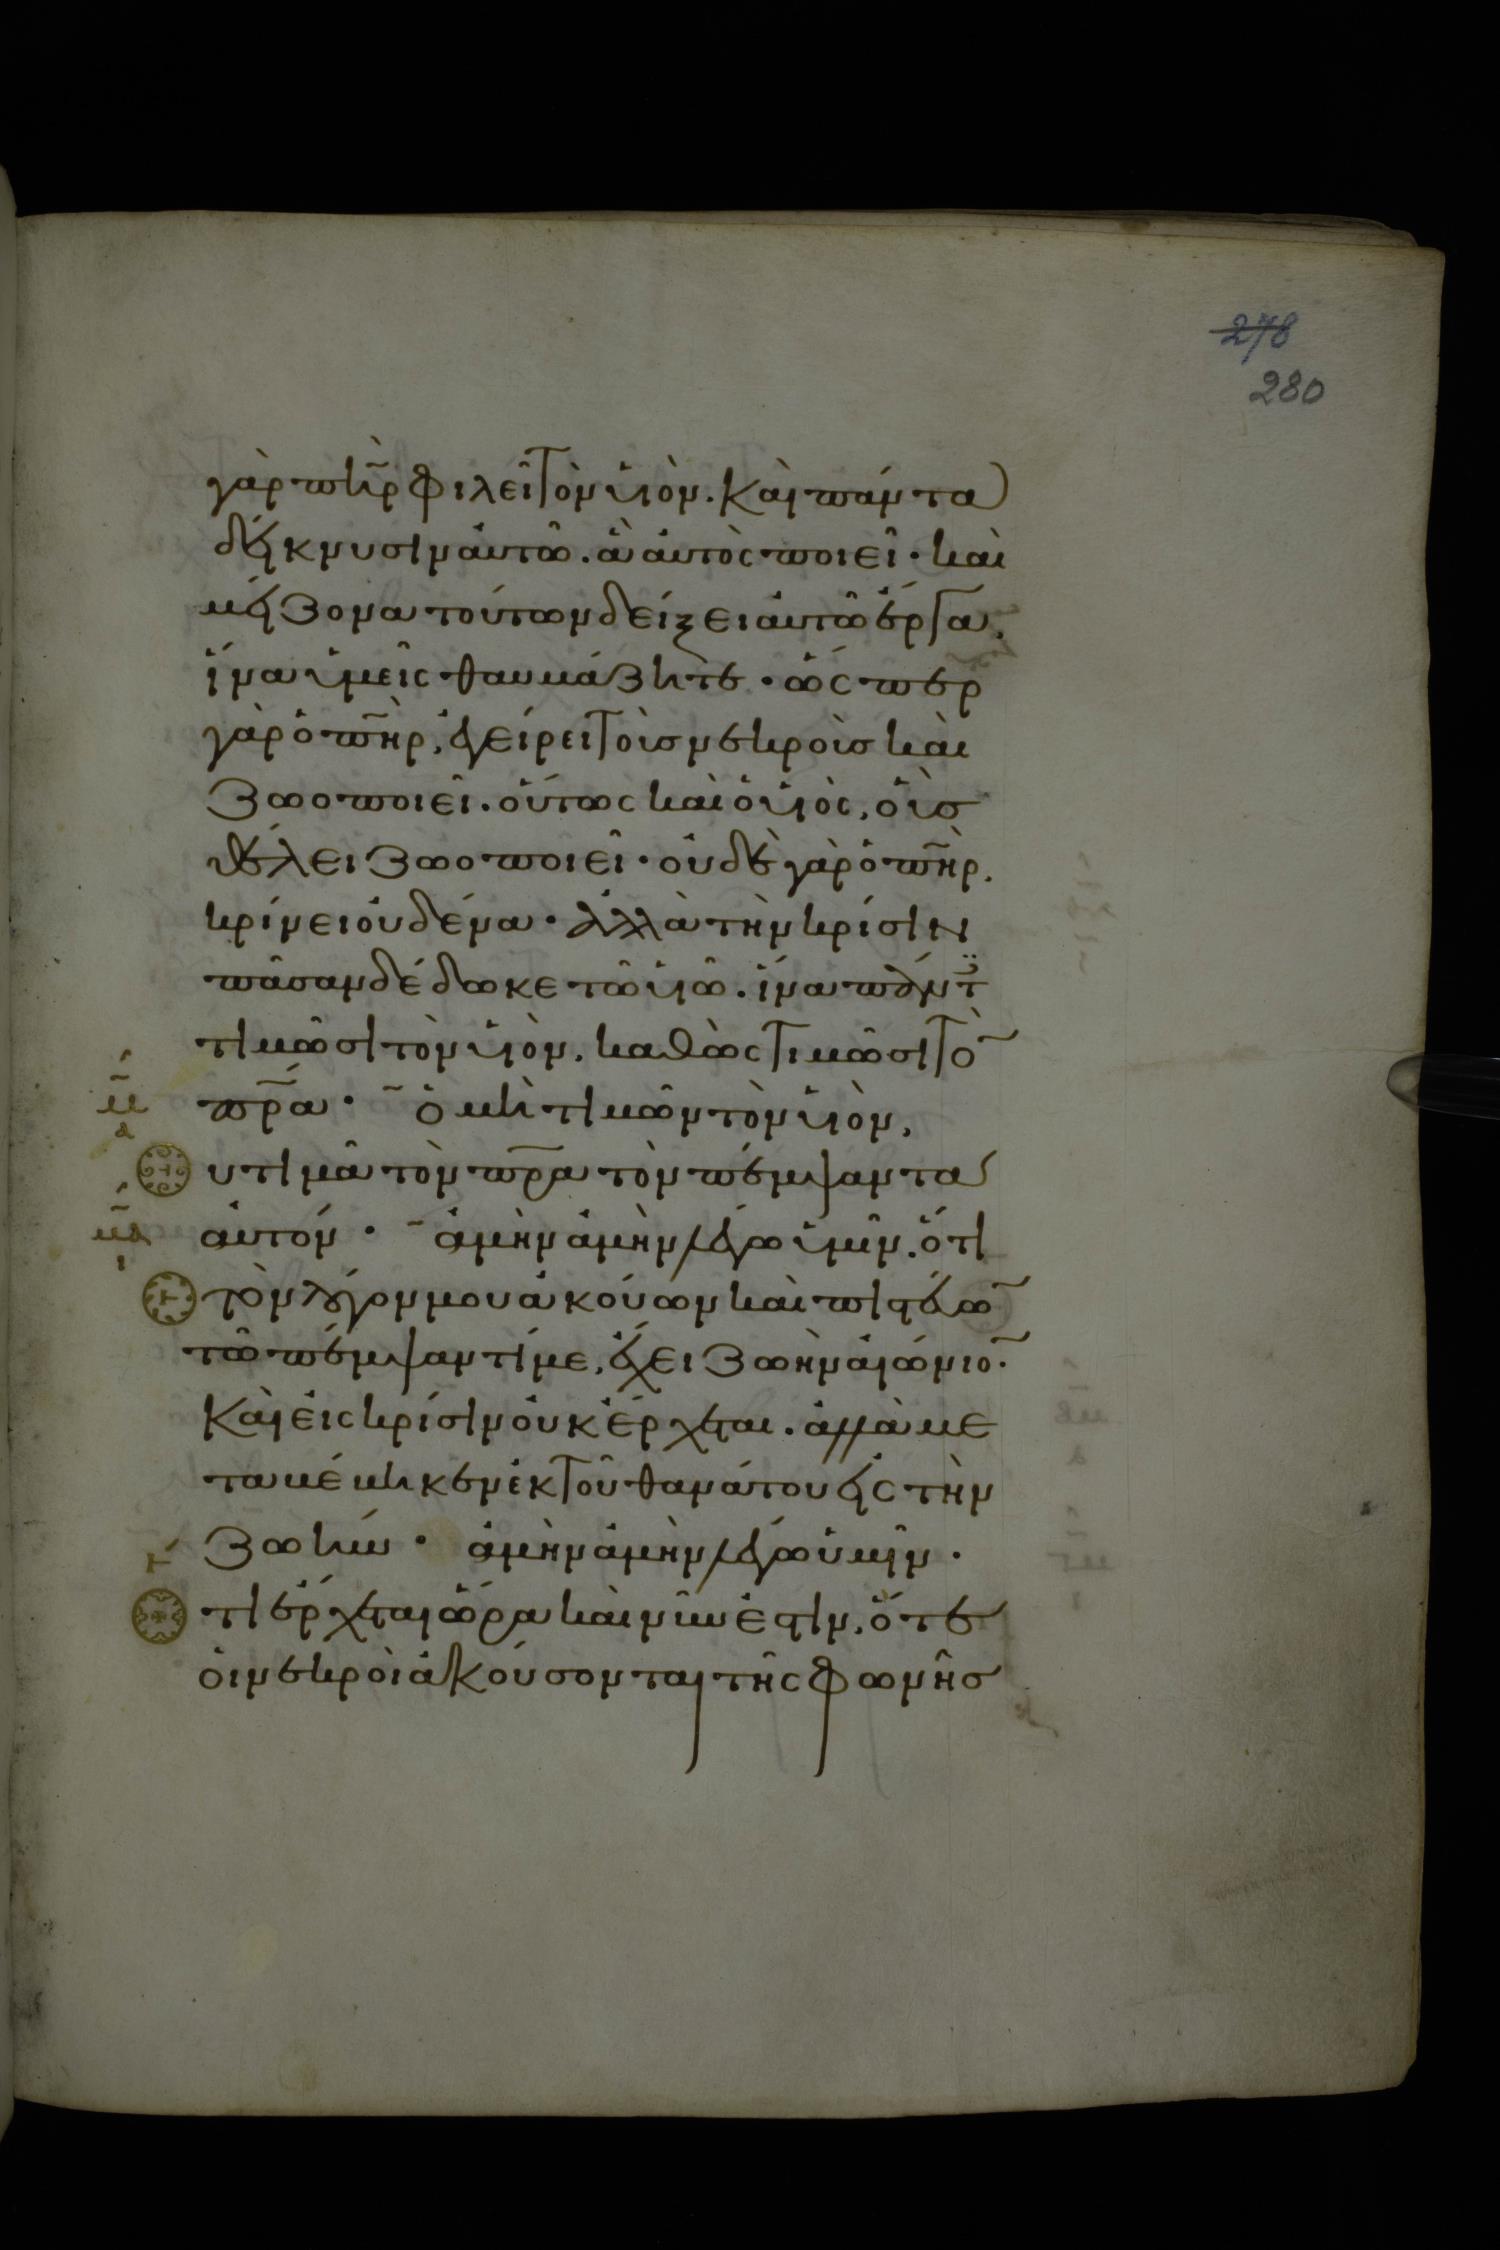 278
280
γὰρ πη̃ρ φιλεῖ τὸν υἱὸν. καὶ πάντα
δείκνυσιν αὐτῶ. ἃ αὐτὸς ποιεῖ· καὶ
μείζονα τούτων δείξει αὐτῶ ἔργα,
ἵνα ὑμεῖς θαυμάζητε· ὥσπερ
γὰρ ὁ πη̃ρ, ἐγείρει τοὺσ νεκροὺσ καὶ
ζωοποιεῖ. οὕτως καὶ ὁ υἱὸς, οὓσ
θέλει ζωοποιεῖ· οὐδὲ γὰρ ὁ πη̃ρ.
κρίνει οὐδένα· ἀλλὰ τὴν κρίσιν
πᾶσαν δέδωκε τῶ υἱῶ. ἵνα πάντ
τιμῶσι τὸν υἱὸν, καθὼς τιμῶσι τὸ
πρ̃α· ὁ μὴ τιμῶν τὸν υἱὸν,
μ̃
α
υ τιμᾶ τὸν πρ̃α τὸν πέμψαντα
μ̃α
ι
αὐτόν· ἀμὴν ἀμὴν λέγω ὑμῖν. ὅτι
τὸν λόγον μου ἀκούων καὶ πιστεύω
τῶ πέμψαντί με, ἔχει ζωὴν αἰώνιο·
καὶ εἰς κρίσιν οὐκ ἔρχεται. ἀλλὰ με
ταμέμηκεν ἐκ τοῦ θανάτου εἰς τὴν
ζωήν· ἀμὴν ἀμὴν λέγω ὑμῖν·
τι ἔρχεται ὥρα καὶ νῦν ἐστιν, ὅτε
οἱ νεκροὶ ἀκούσονται τῆς φωνῆσ